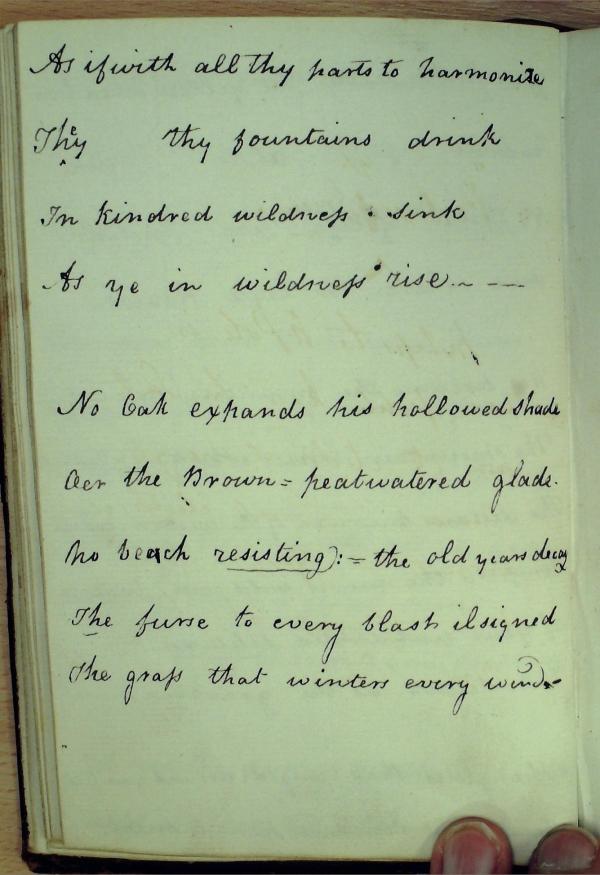 As if with all thy parts to harmonize
They thy fountains drink
In kindred wildness . sink
As ye in wildness rise.. - --
No Oak expands his hollowed shade
Oer the Brown = peatwatered glade.
No beach resisting): = the old years decay
The furse to every blast ilsigned
The grass that winters every wind